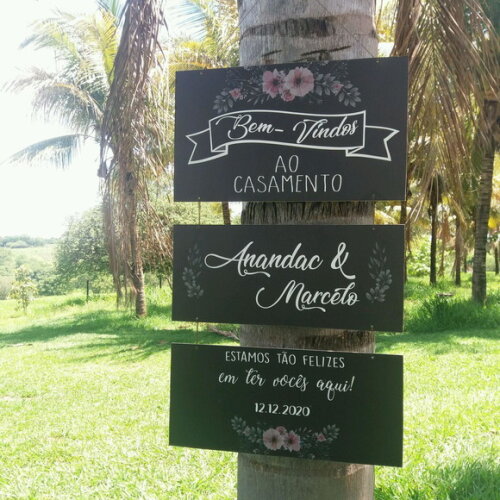 Bem-Vindos
AO
CASAMENTO
Anandac &
Marcelo
ESTAMOS TÃO FELIZES
em ter vocês aqui!
12.12.2020